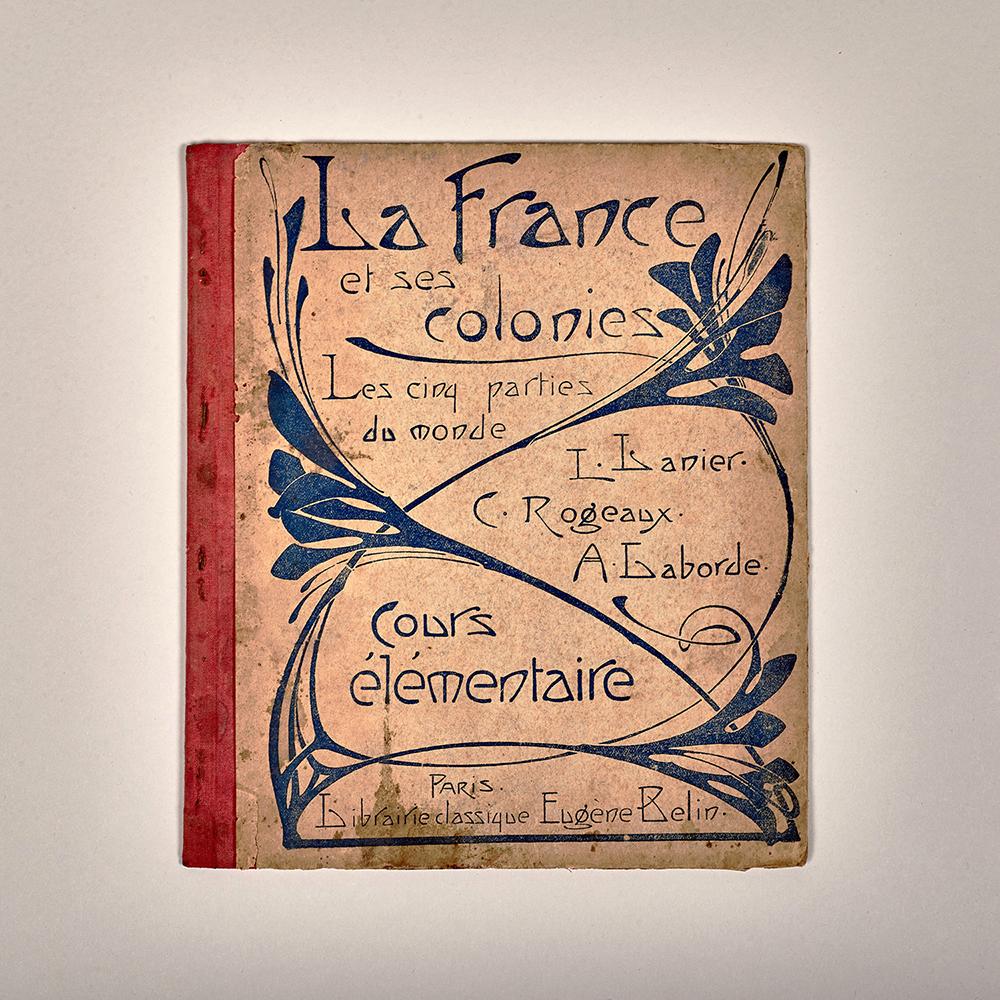 La France
et ses
colonies
Les cinq parties
du monde
L. Lanier.
C. Rogeaux.
A. Laborde.
Cours
élémentaire
PARIS.
Librairie classique Eugène Belin.